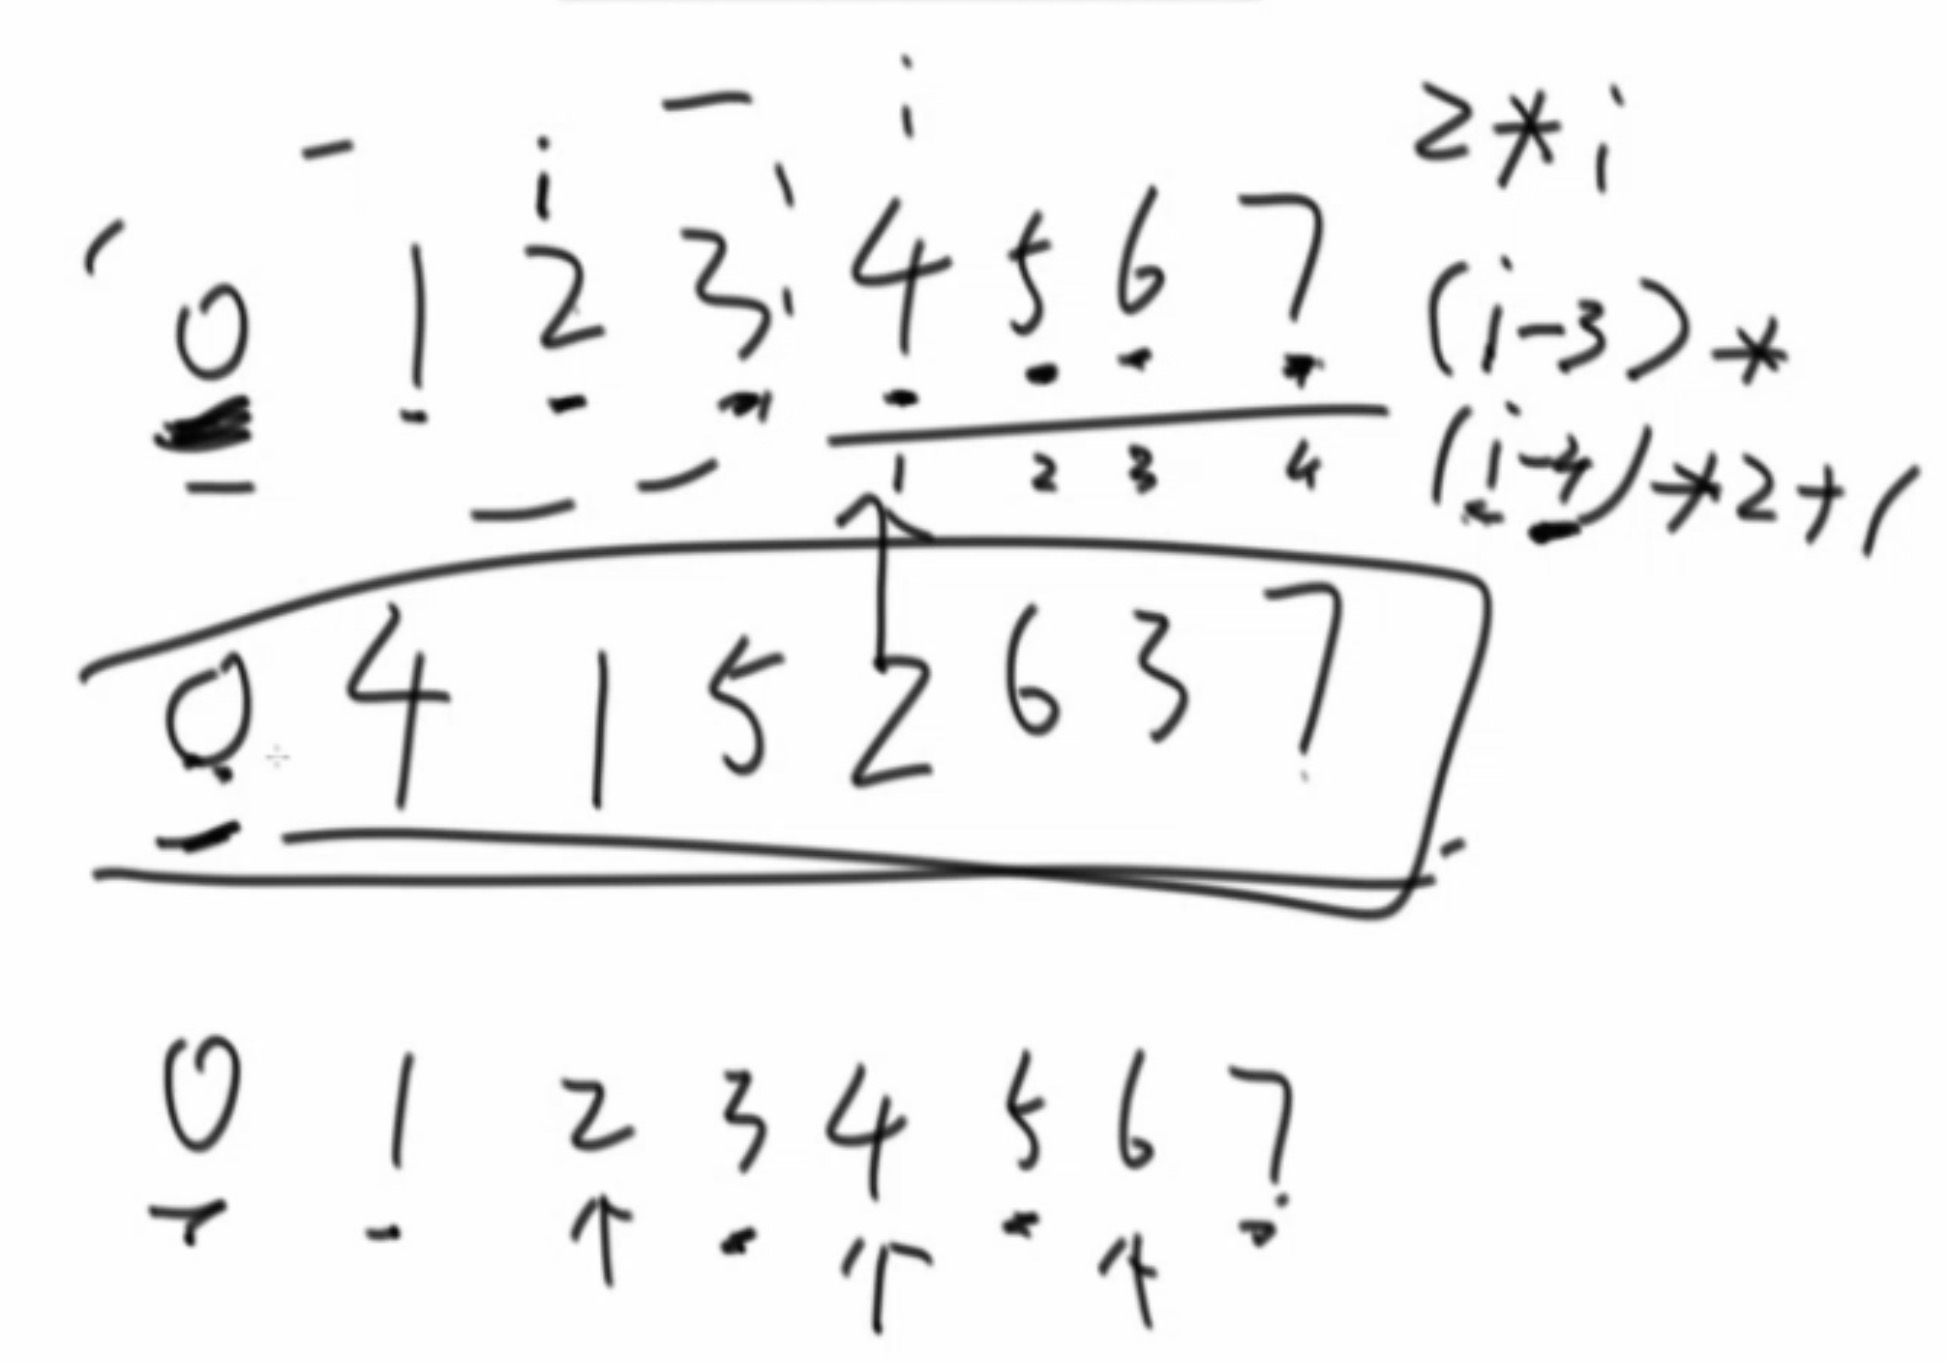 i i 2*i
0 1 2 3 4 5 6 7 (i-3)*
1 2 3 4 (i-4)*2+1
0 4 1 5 2 6 3 7
0 1 2 3 4 5 6 7